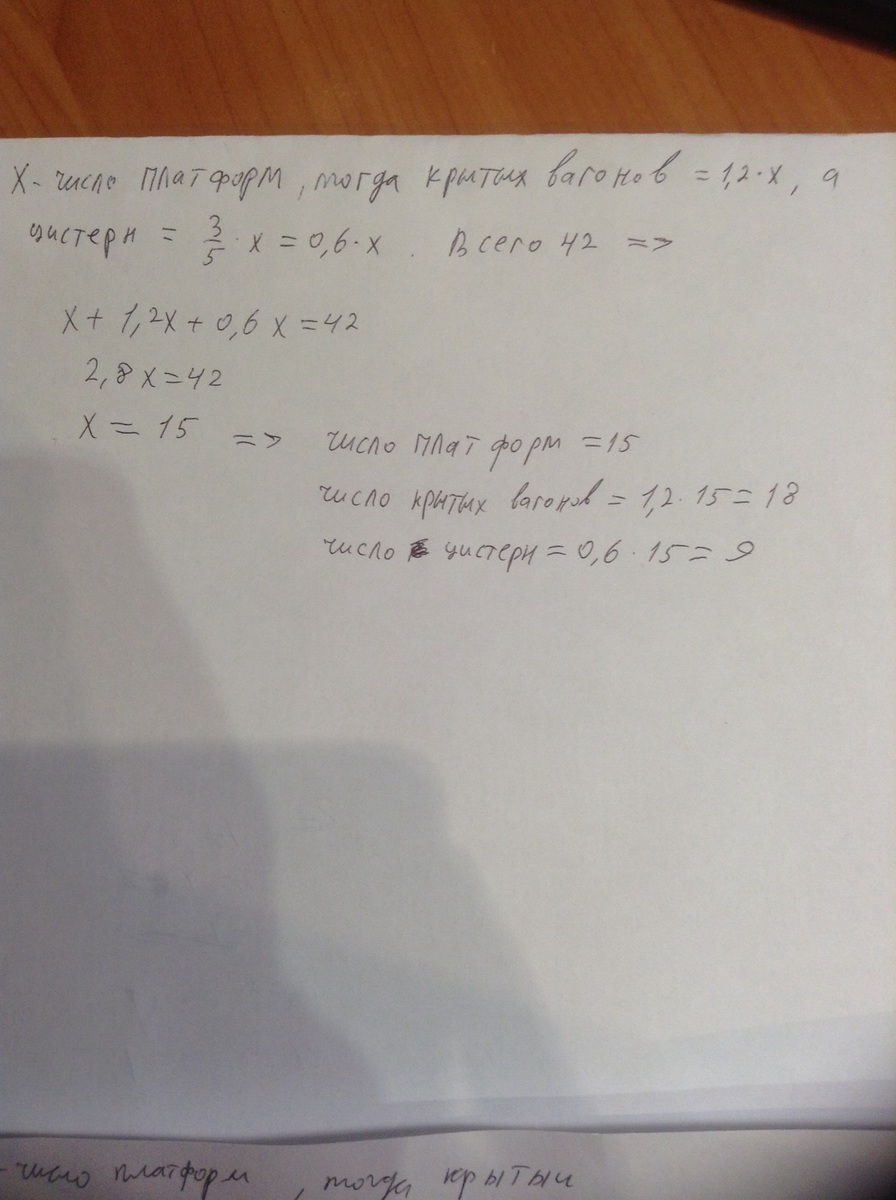 X - число платформ, тогда крытых вагонов = 1,2·x, а
цистерн = 3/5 · x = 0,6·x. Всего 42 =>
x + 1,2x + 0,6x = 42
2,8x = 42
x = 15 => число платформ = 15
число крытых вагонов = 1,2·15 = 18
число цистерн = 0,6·15 = 9
- число платформ, тогда крытых